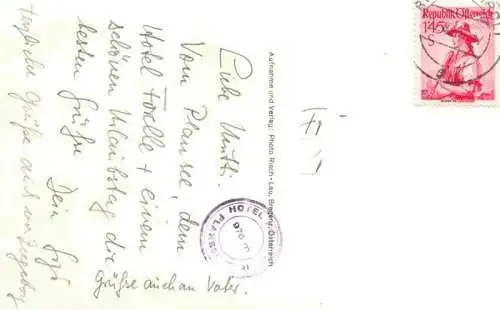 Liebe Mutti.
Vom Plansee, dem
Hotel Forelle + einem
schönen Urlaubstag die
besten Grüße Dein
Grüße auch an Vater.
herzliche Grüße aus
Aufnahme und Verlag: Photo Risch-Lau, Bregenz, Österreich
HOTEL
PLANSEE
976 m
Republik Österreich
1.45
S